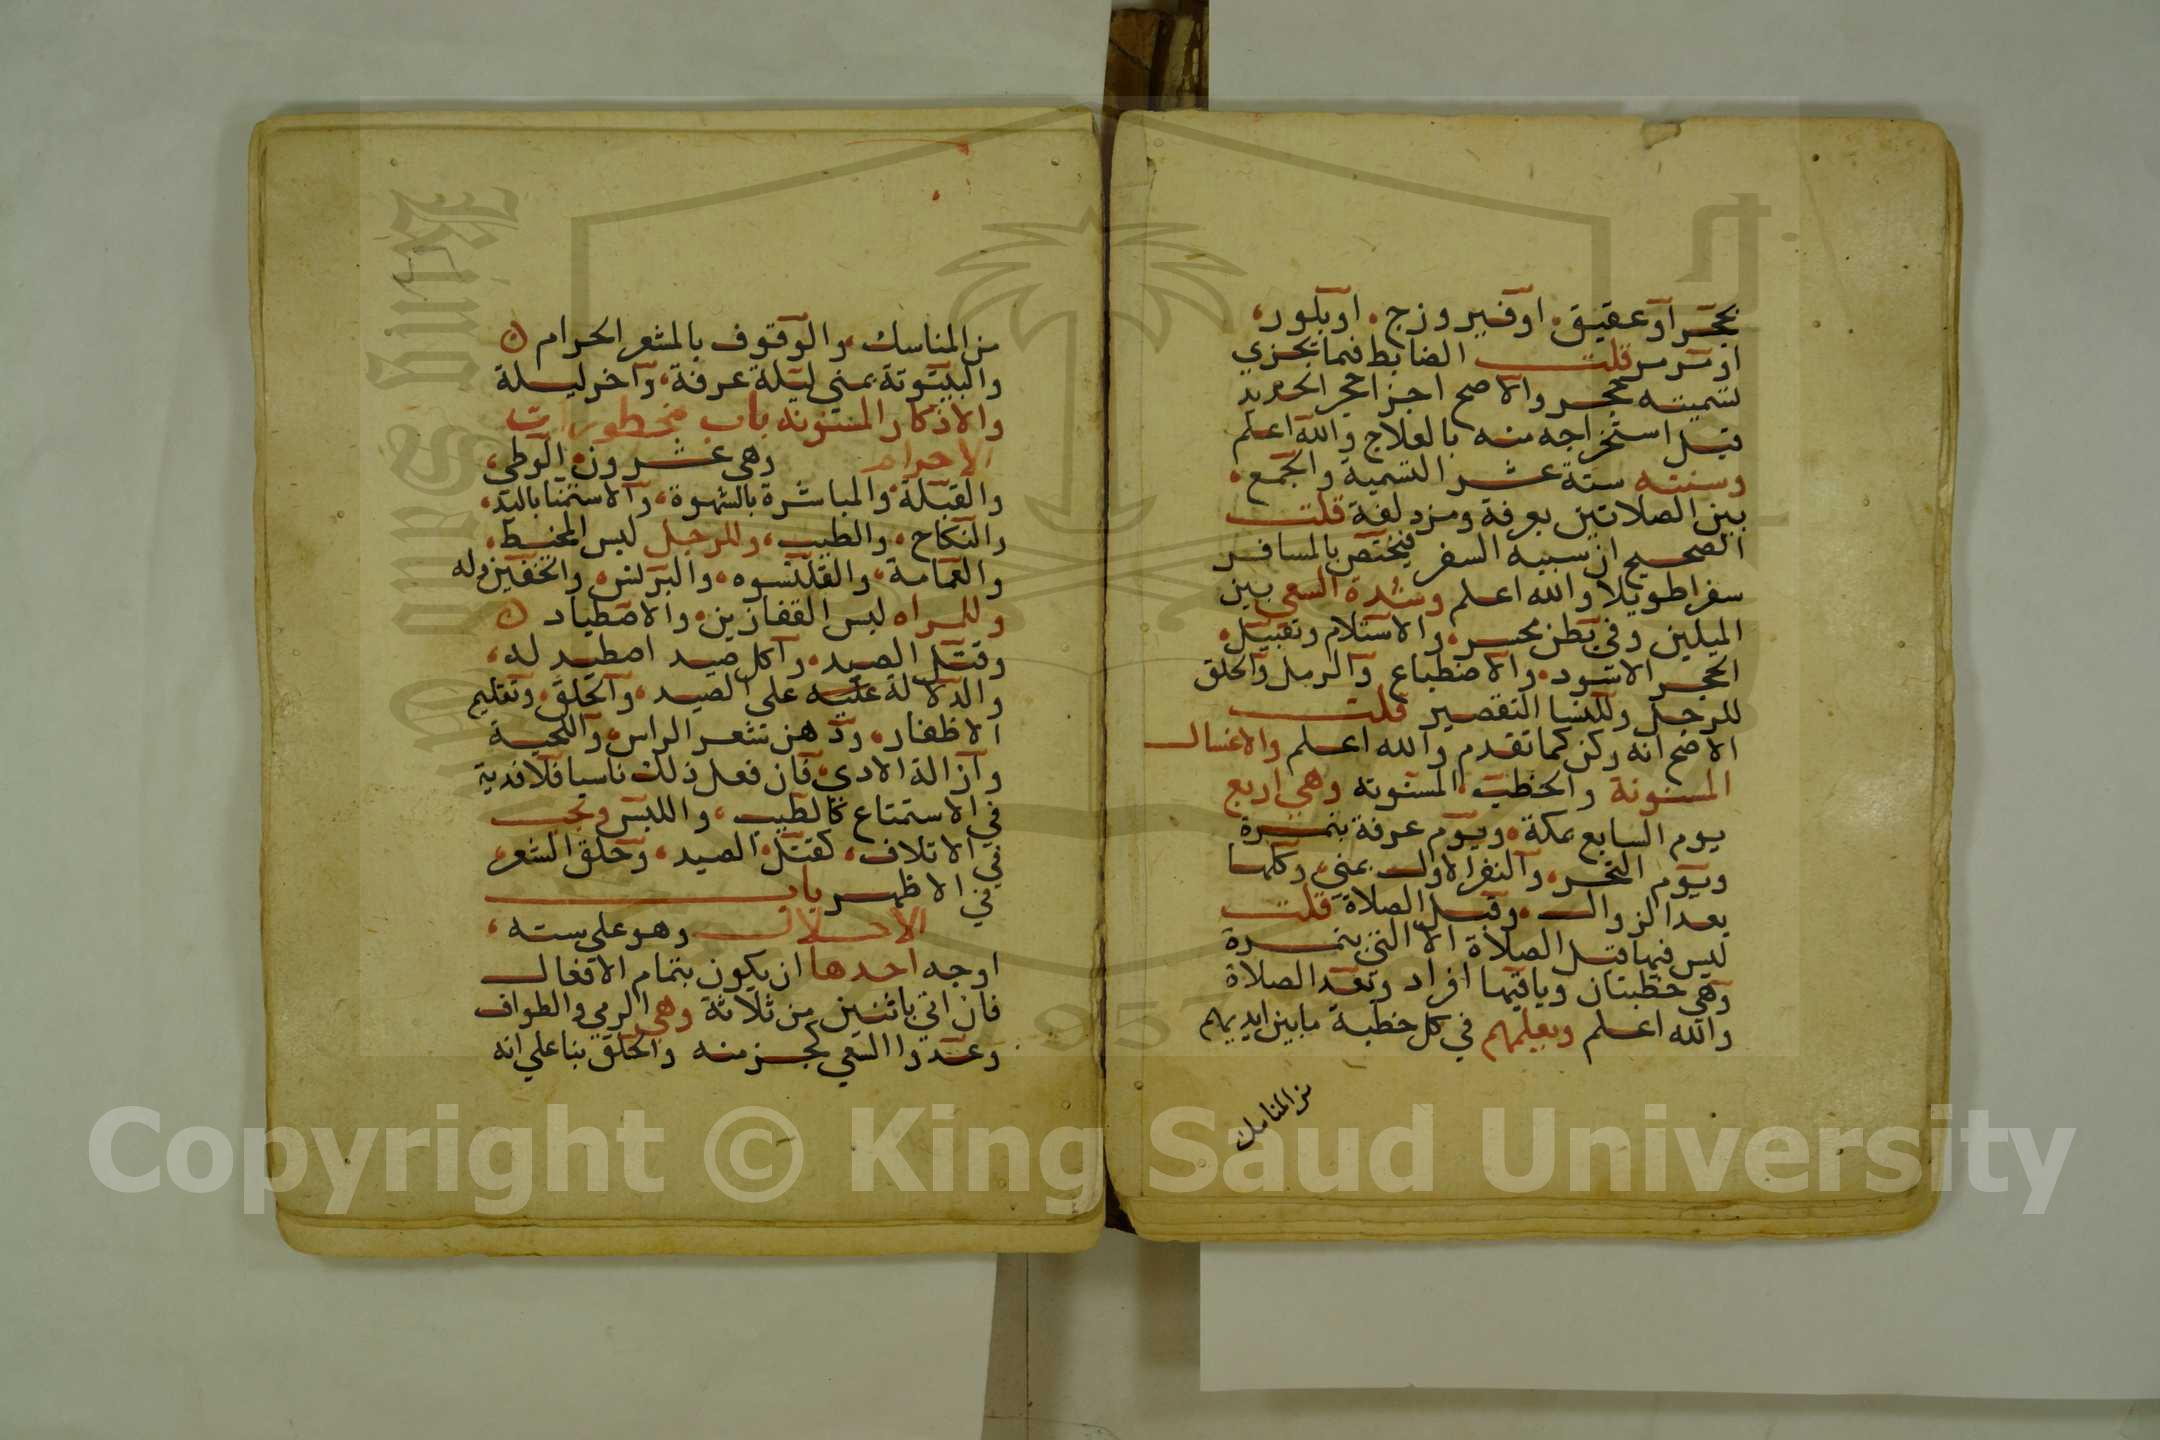 بحجر او عقيق، او فيروزج، او بلور،
او مرمر قلت الضابط فيما يجزي
تسميته بحجر والاصح اجزا حجر الحديد
قبل استخراجه منه بالعلاج والله اعلم
وسنته ستة عشر التسمية والجمع،
بين الصلاتين بعرفة ومزدلفة قلت
الصحيح ان سببه السفر فيختص بالمسافر
سفرا طويلا والله اعلم وشدة السعي بين
الميلين وفي بطن محسر، والاستلام وتقبيل،
الحجر الاسود، والاضطباع والرمل والحلق
للرجل وللنسا التقصير قلت
الاصح انه ركن كما تقدم والله اعلم والاغسال
المسنونة والخطب، المسنونه وهي اربع
يوم السابع بمكة، ويوم عرفة بنمرة
ويوم النحر، والنفر الاول بمنى، وكلها
بعد الزوال، وقبل الصلاة قلت
ليس فيها قبل الصلاة الا التي بنمرة
وهي خطبتان وباقيها افراد وبعد الصلاة
والله اعلم ويعلمهم في كل خطبة ما بين ايديهم
من المناسك
من المناسك، والوقوف بالمشعر الحرام ٥
والبيتوتة بمنى ليلة عرفة، وآخر ليلة
والاذكار المسنونه باب محظورات
الاحرام وهي عشرون، الوطي،
والقبلة، والمباشرة بالشهوة، والاستمنا باليد،
والنكاح، والطيب، وللرجل لبس المخيط،
والعمامة، والقلنسوه، والبرنس، والخفين وله
وللمراه لبس القفازين، والاصطياد ٥
وقتل الصيد، واكل صيد اصطيد له،
والدلالة عليه على الصيد، والحلق، وتقليم
الاظفار، ودهن شعر الراس، واللحية
وازالة الاذى، فان فعل ذلك ناسيا فلا فدية
في الاستمتاع كالطيب، واللبس وتجب
في الاتلاف، كقتل، الصيد، وحلق الشعر،
في الاظهر باب
الاحلال وهو على سته،
اوجه احدها ان يكون بتمام الافعال
فان اتى باثنين من ثلاثة وهي الرمي والطواف
وعدوا السعي كجز منه والحلق بنا على انه
Copyright © King Saud University
1957